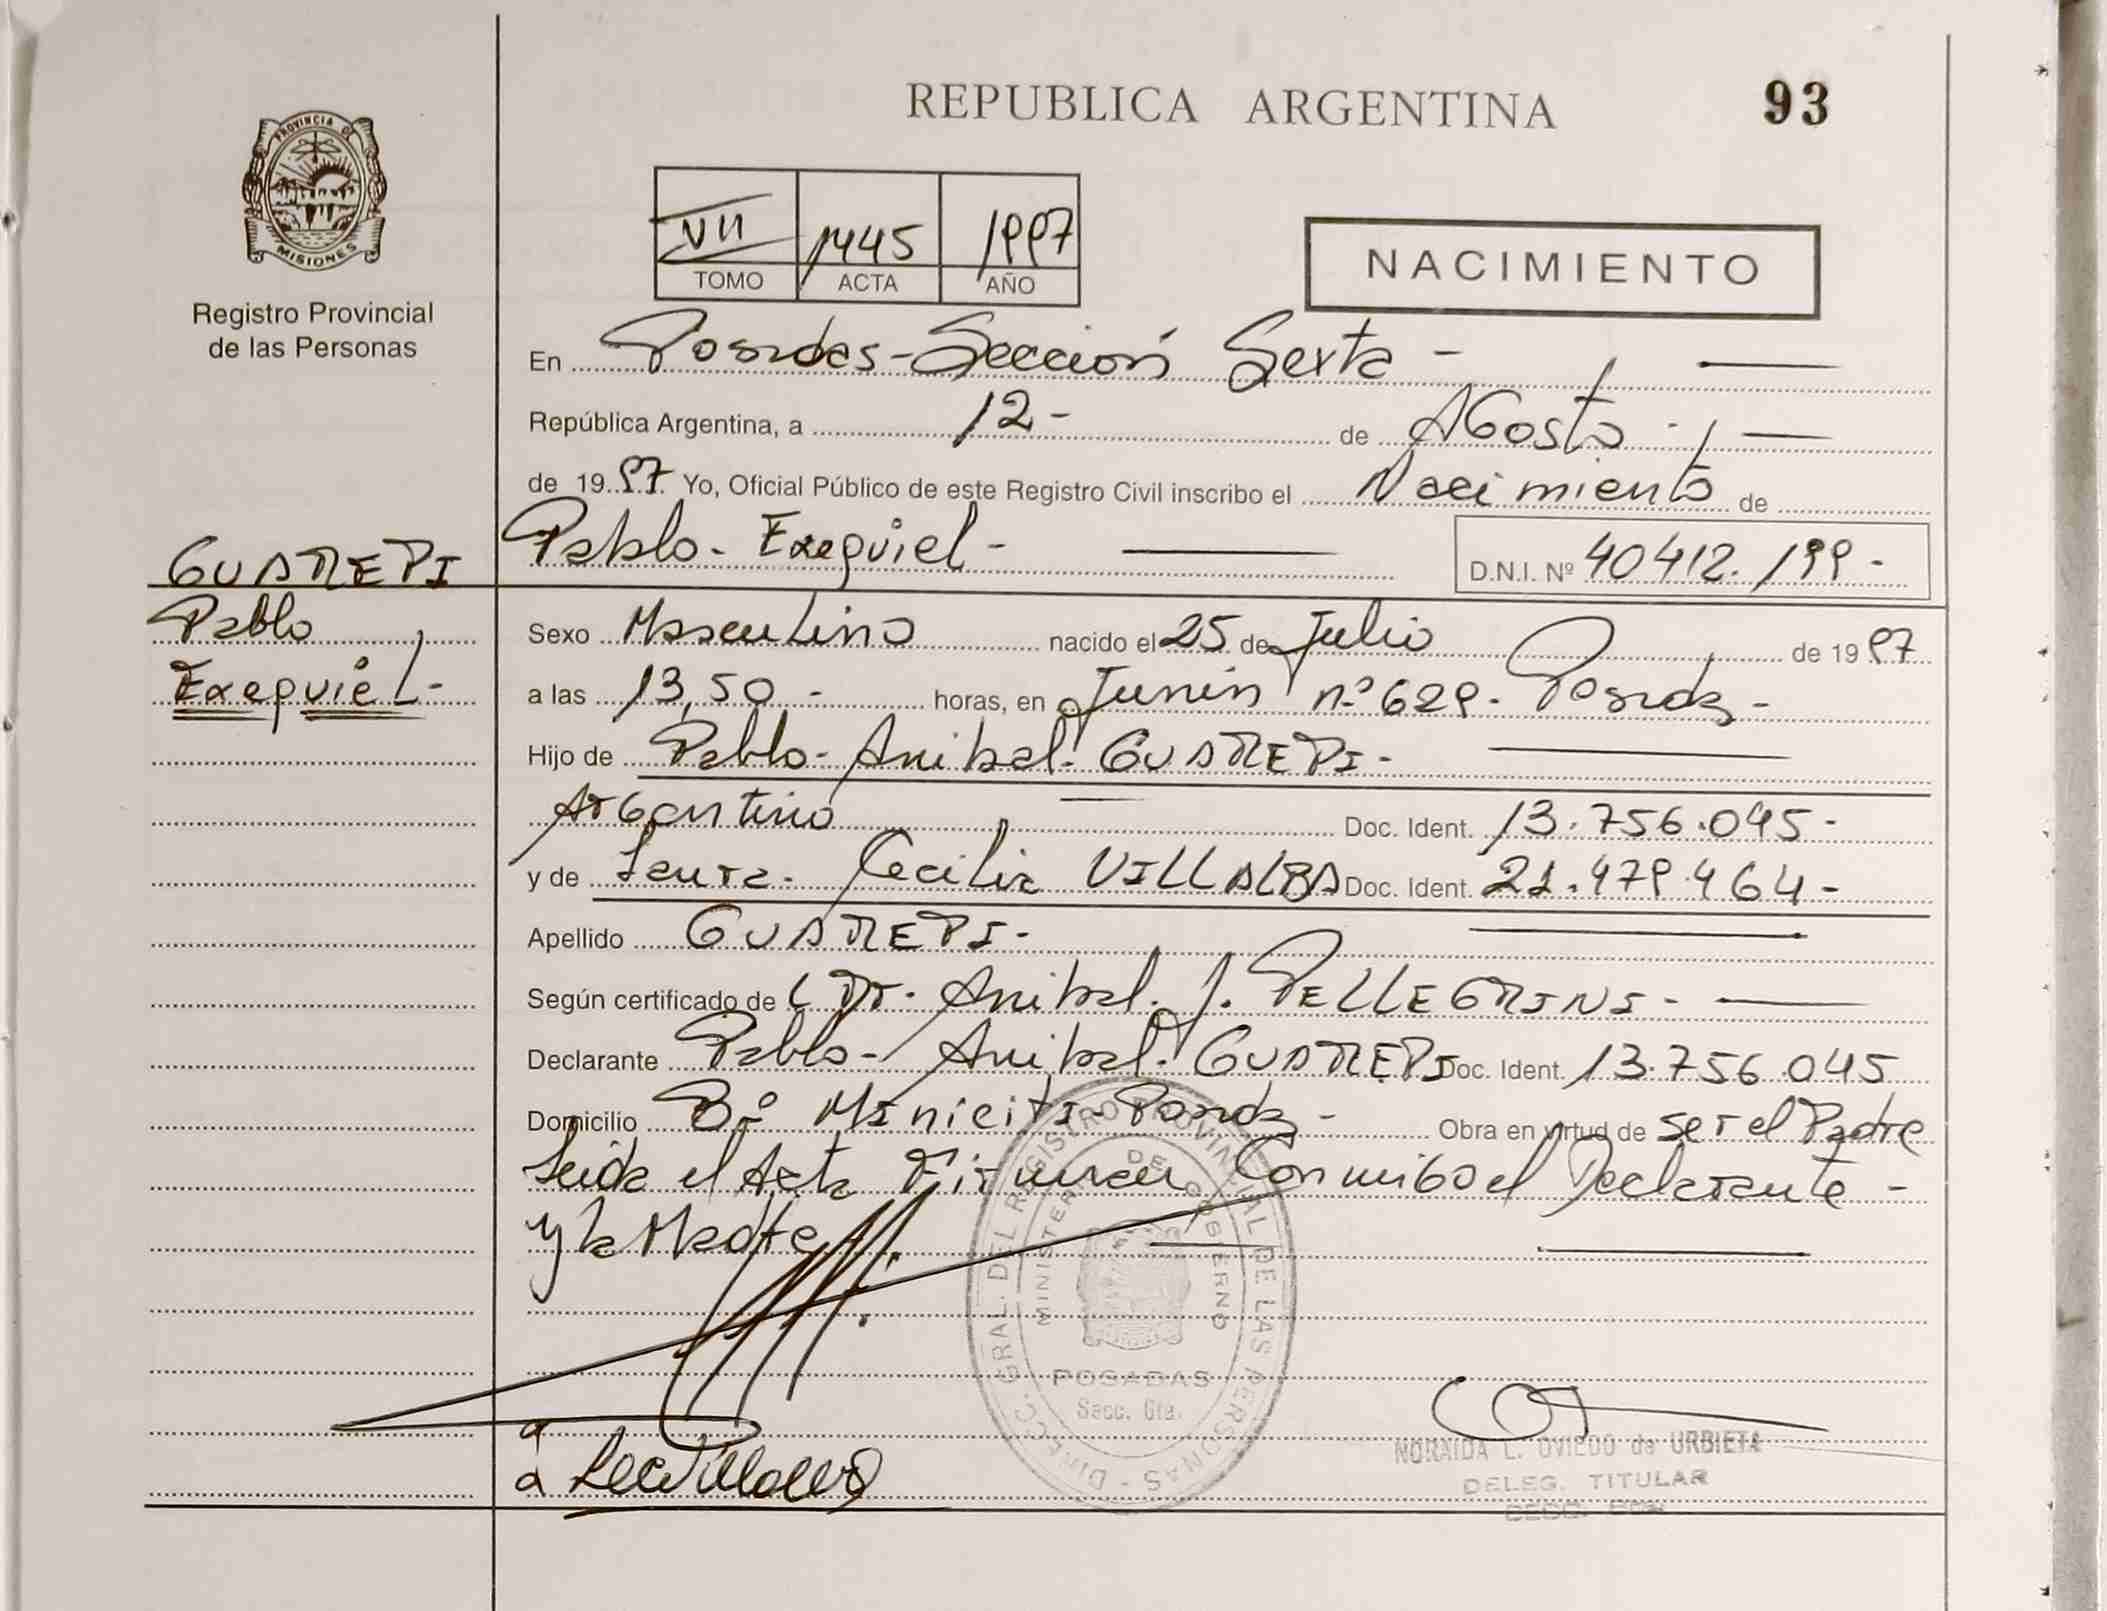 REPUBLICA ARGENTINA
93
PROVINCIA DE
MISIONES
Registro Provincial
de las Personas
VII 1445 1997
TOMO ACTA AÑO
NACIMIENTO
En Posadas - Sección Sexta -
República Argentina, a 12 - de Agosto -
de 1997 Yo, Oficial Público de este Registro Civil inscribo el Nacimiento de
Pablo - Exequiel - D.N.I. Nº 40412.199 -
GUAREPI
Pablo
Exequiel -
Sexo Masculino nacido el 25 de Julio de 1997
a las 13,50 - horas, en Junín nº 629 - Posadas -
Hijo de Pablo - Anibal - GUAREPI -
Argentino Doc. Ident. 13.756.045 -
y de Laura - Cecilia VILLALBA Doc. Ident. 21.479.464 -
Apellido GUAREPI -
Según certificado de Dr. Anibal. J. PELLEGRINI -
Declarante Pablo - Anibal - GUAREPI Doc. Ident. 13.756.045
Domicilio Bº Miniciti - Posadas - Obra en virtud de ser el Padre
Leida el Acta Firman Conmigo el Declarante -
y la Madre
DIRECC. GRAL. DEL REGISTRO PROVINCIAL DE LAS PERSONAS
MINISTERIO DE GOBIERNO
POSADAS
Secc. 6ta.
NORAIDA L. OVIEDO de URBIETA
DELEG. TITULAR